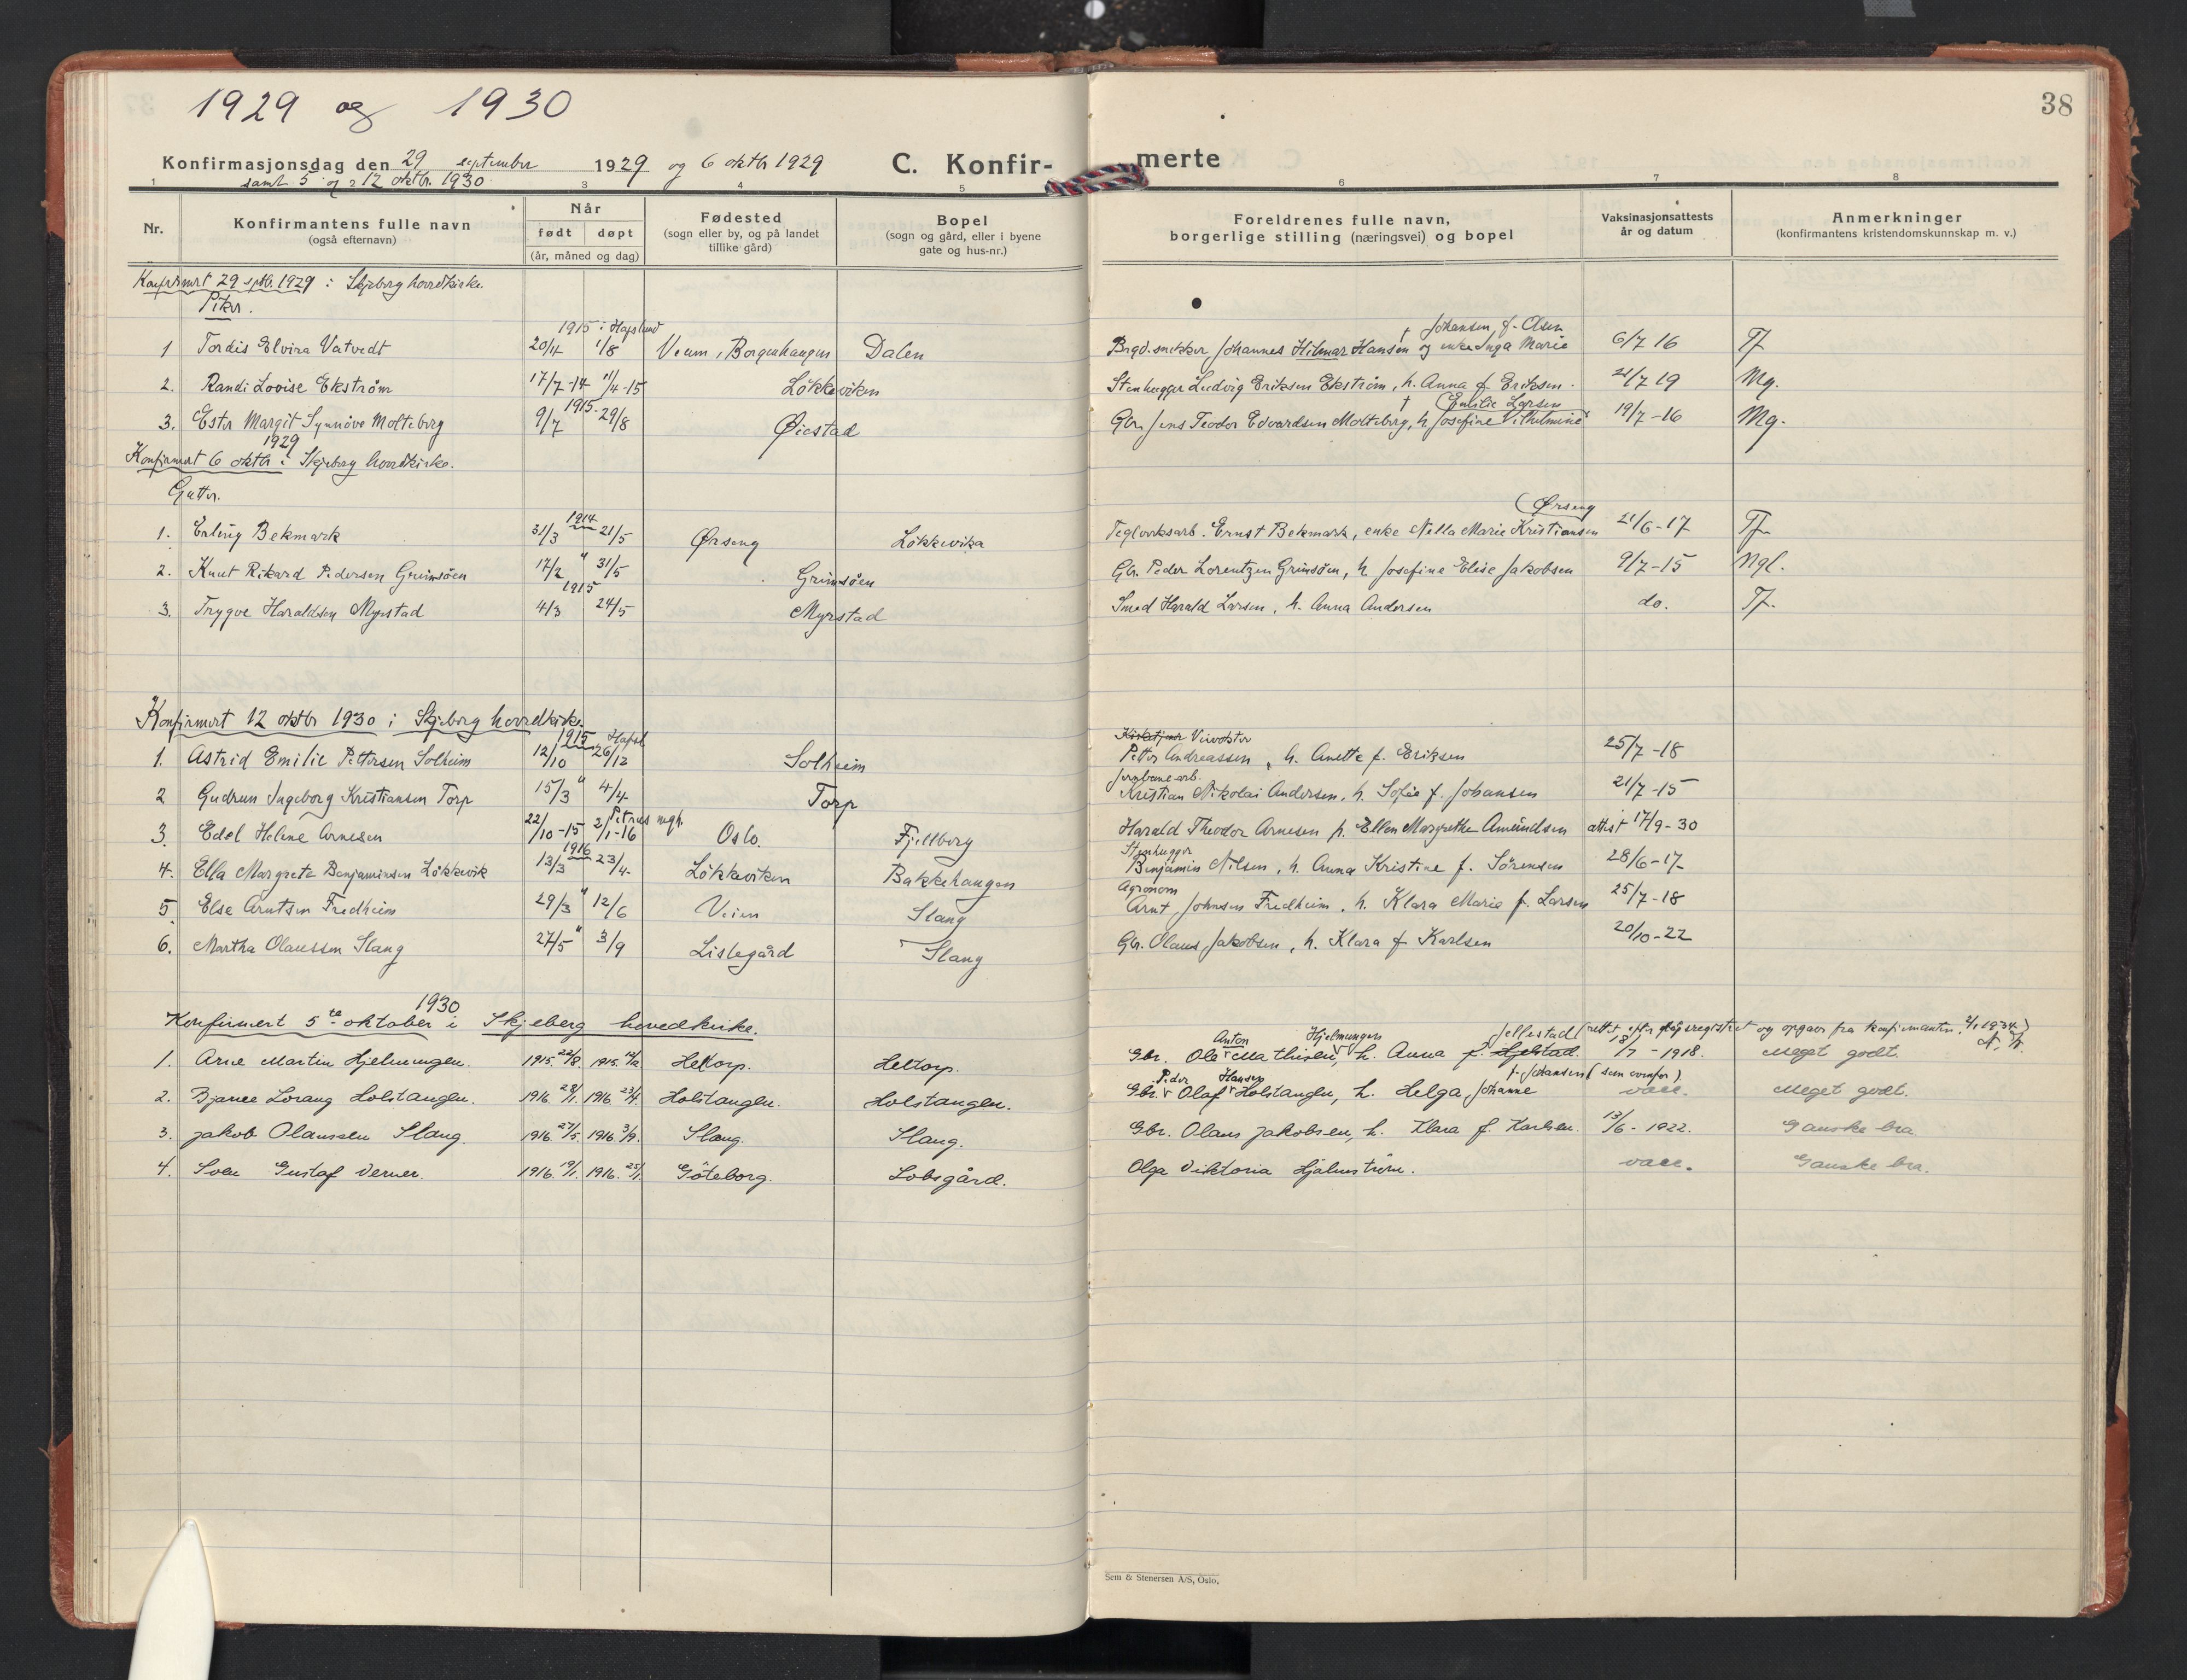 1929 og 1930
38
Konfirmasjonsdag den 29 september 1929 og 6 oktbr 1929 C. Konfir- merte
samt 5 og 12 oktbr. 1930
1 3 4 5 6 7 8
Nr. Konfirmantens fulle navn (også efternavn) Når født døpt (år, måned og dag) Fødested (sogn eller by, og på landet tillike gård) Bopel (sogn og gård, eller i byene gate og hus-nr.) Foreldrenes fulle navn, borgerlige stilling (næringsvei) og bopel Vaksinasjonsattests år og datum Anmerkninger (konfirmantens kristendomskunnskap m. v.)
Konfirmert 29 septbr. 1929 i Skjeberg hovedkirke.
Piker.
1915 i Hafslund † Johansen, f. Olsen
1 Tordis Elvira Vatvedt 20/4 1/8 Veum, Borgenhaugen Dalen Bygd.snekker Johannes Hilmar Hansen og enke Inga Marie 6/7 16 Tf
2. Randi Lovise Ekström 17/7-14 11/4-15 Løkkeviken Stenhugger Ludvig Eriksen Ekström, h. Anna f. Eriksen. 21/7 19 Mg.
1915 † Emilie Larsen
3. Ester Margit Synnöve Molteberg 9/7 29/8 Øiestad Gbr. Jens Teodor Edvardsen Molteberg, h. Josefine Vilhelmine 19/7-16 Mg.
1929
Konfirmert 6 oktbr i Skjeberg hovedkirke.
Gutter.
1914 (Ørseng
1. Erling Bekmark 31/3 21/5 Ørseng Løkkevika Teglverksarb. Ernst Bekmark, enke Nella Marie Kristiansen 21/6-17 Tf
2. Knut Rikard Pedersen Grimsöen 17/2 " 31/5 Grimsöen Gbr. Peder Lorentzen Grimsöen, h. Josefine Elise Jakobsen 9/7-15 Ngl.
1915
3. Trygve Haraldsen Myrstad 4/3 24/5 Myrstad Smed Harald Larsen, h. Anna Andersen do. Tf.
Konfirmert 12 oktbr 1930 i Skjeberg hovedkirke.
1915 Hafsl. Veivokter
1. Astrid Emilie Pettersen Solheim 12/10 26/12 Solheim Petter Andreassen, h. Anette f. Eriksen 25/7-18
Jernbane arb.
2 Gudrun Ingeborg Kristiansen Torp 15/3 " 4/4 Torp Kristian Nikolai Andersen, h. Sofie f. Johansen 21/7-15
Petrus mgh.
3. Edel Helene Arnesen 22/10-15 2/1-16 Oslo. Fjellberg Harald Theodor Arnesen h. Ellen Margrethe Amundsen attest 17/9-30
1916 Stenhugger
4. Ella Margrete Benjaminsen Løkkevik 13/3 23/4 Løkkeviken Bakkehaugen Benjamin Nilsen, h. Anna Kristine f. Sörensen 28/6-17
Agronom
5 Else Arntsen Fredheim 29/3 " 12/6 Veien Slang Arnt Johnsen Fredheim, h. Klara Marie f. Larsen 25/7-18
6. Martha Olaussen Slang 27/5 " 3/9 Lislegård Slang Gbr. Olaus Jakobsen, h. Klara f. Karlsen 20/10-22
1930
Konfirmert 5te oktober i Skjeberg hovedkirke.
Anton Hjelmungen Jellestad (rettet efter dåpsregistret og opgave fra konfirmanten. 2/1 1934.)
1. Arne Martin Hjelmungen. 1915. 22/8. 1915. 12/12 Heltorp. Heltorp. Gbr. Ole Mathisen, h. Anna f. Hjelstad. 18/7 - 1918. Meget godt.
Peder Hansen f. Johansen (som ovenfor)
2. Bjarne Lorang Holstangen. 1916. 28/1. 1916. 23/4. Holstangen. Holstangen. Gbr. Olaf Holstangen, h. Helga Johanne vacc. Meget godt.
3. Jakob Olaussen Slang. 1916. 27/5. 1916. 3/9. Slang. Slang. Gbr. Olaus Jakobsen, h. Klara f. Karlsen. 13/6 - 1922. Ganske bra
4. Sven Gustaf Verner. 1916. 19/1. 1916. 25/1. Göteborg. Lobsgård. Olga Viktoria Hjälmström. vacc. Ganske bra.
Sem & Stenersen A/S, Oslo.